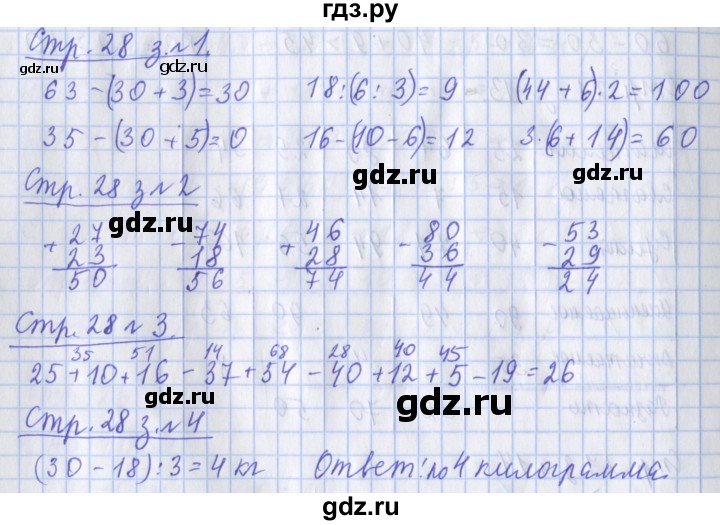 гдз.ру
Стр. 28 з.№1.
63-(30+3)=30 18:(6:3)=9 (44+6)·2=100
35-(30+5)=0 16-(10-6)=12 3·(6+14)=60
gdz.top gdz.top
Стр. 28 з№2
gdz.top
+27 -74 +46 -80 -53
23 18 28 36 29
50 56 74 44 24
gdz.top gdz.top gdz.top
Стр. 28 №3.
35 51 14 68 28 40 45
25+10+16-37+54-40+12+5-19=26
gdz.top gdz.top
Стр. 28 з.№4
gdz.top
(30-18):3=4 кг Ответ: по 4 килограмма.
gdz.top gdz.top